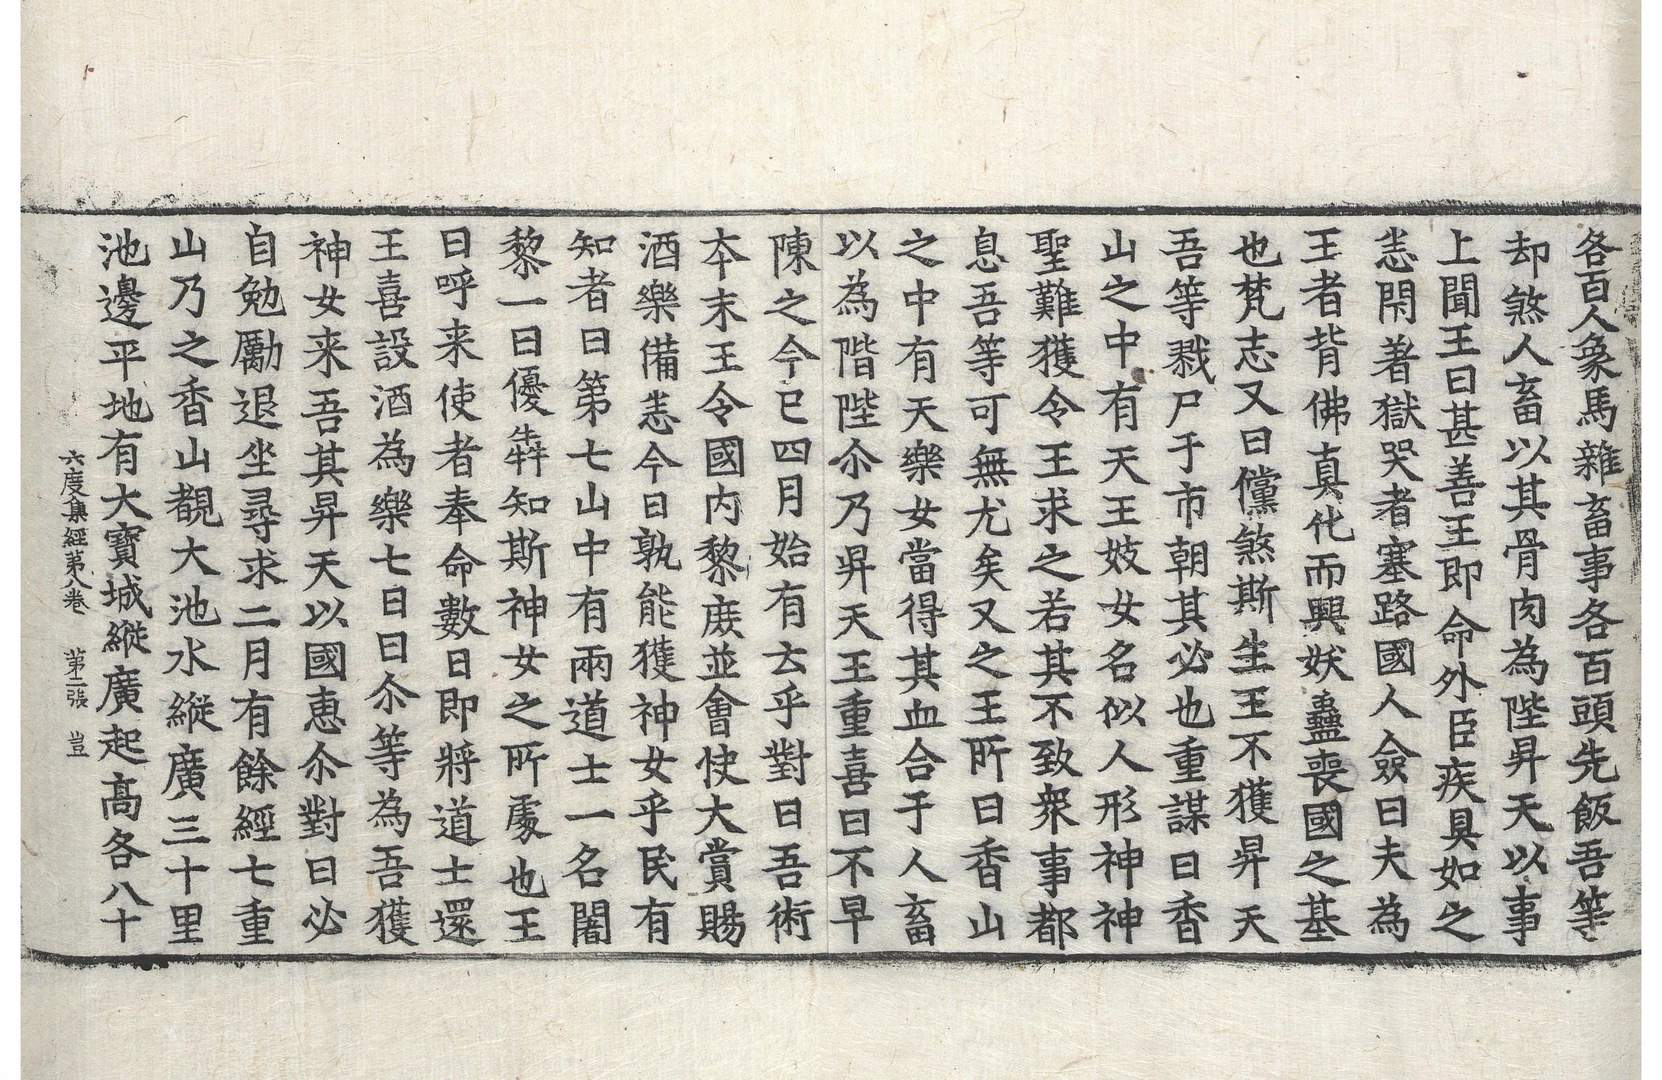 各百人象馬雜畜事各百頭先飯吾等
却煞人畜以其骨肉為陛昇天以事
上聞王曰甚善王即命外臣疾具如之
恙閇著獄哭者塞路國人僉曰夫為
王者背佛真化而興妖蠱喪國之基
也梵志又曰儻煞斯生王不獲昇天
吾等戮尸于市朝其必也重謀曰香
山之中有天王妓女名似人形神神
聖難獲令王求之若其不致衆事都
息吾等可無尤矣又之王所曰香山
之中有天樂女當得其血合于人畜
以為階陛尒乃昇天王重喜曰不早
陳之今已四月始有云乎對曰吾術
夲末王令國內黎庻並會快大賞賜
酒樂備恙今日孰能獲神女乎民有
知者曰第七山中有兩道士一名闍
黎一曰優犇知斯神女之所處也王
曰呼来使者奉命數日即將道士還
王喜設酒為樂七日曰尒等為吾獲
神女来吾其昇天以國惠尒對曰必
自勉勵退坐尋求二月有餘經七重
山乃之香山覩大池水縱廣三十里
池邊平地有大寶城縱廣起高各八十
六度集經第八卷　第二張　豈